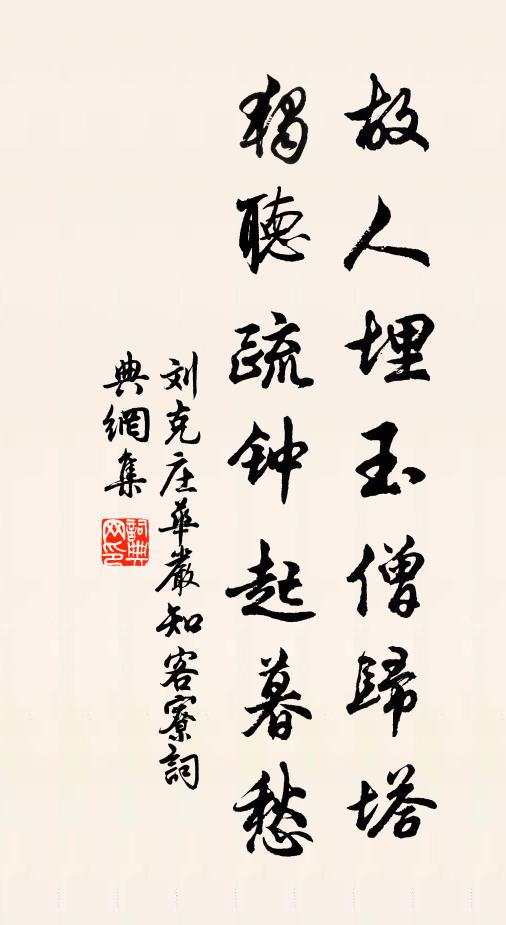 故人埋玉僧歸塔
獨聽疏钟起暮愁
刘克庄華嚴知客寮詞
典網集
詞典
网印